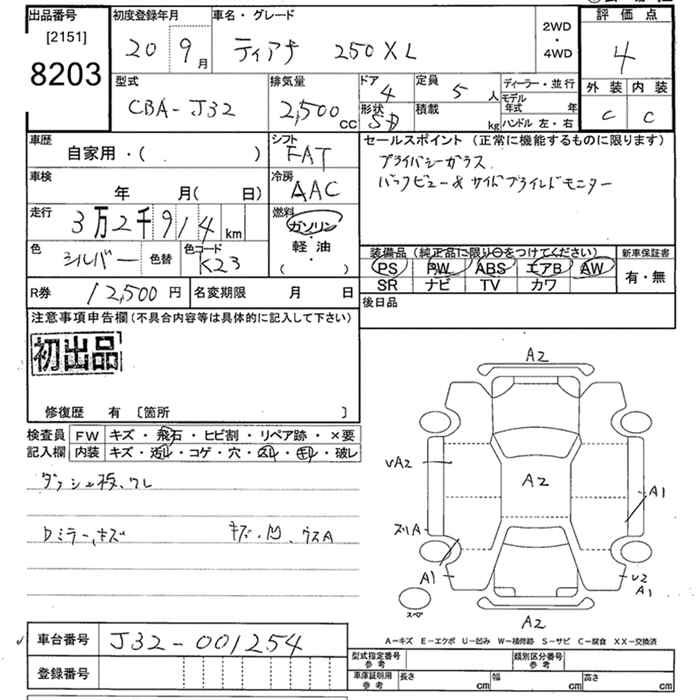 出品番号 初度登録年月 車名・グレード 2WD・4WD 評価点
[2151]
8203 20 9月 ティアナ 250XL 4
型式 排気量 ドア 定員 ディーラー・並行 外装 内装
CBA-J32 2,500cc 4 5人 モデル年式 年 C C
形状 積載 kg ハンドル 左・右
車歴 シフト セールスポイント (正常に機能するものに限ります)
自家用・( ) FAT プライバシーガラス
車検 冷房 バックビュー&サイドブラインドモニター
年 月( 日) AAC
走行 燃料
3万2千914km ガソリン・軽油・( )
色 色替 色コード 装備品(純正品に限り○をつけてください) 新車保証書
シルバー K23 PS PW ABS エアB AW 有・無
SR ナビ TV カワ
R券 12,500円 名変期限 月 日 後日品
注意事項申告欄(不具合内容等は具体的に記入して下さい)
初出品
修復歴 有 [箇所 ]
検査員 FW キズ・飛石・ヒビ割・リペア跡・×要
記入欄 内装 キズ・汚レ・コゲ・穴・スレ・キレ・破レ
ダッシュ板、ワレ
Dミラー、キズ キズ・凹、ウスA
A2
UA2 A2 A1
ズリA
A1 U2
A1
スペア A2
A-キズ E-エクボ U-凹み W-補修跡 S-サビ C-腐食 XX-交換済
車台番号 J32-001254
型式指定番号 参考 類別区分番号 参考
登録番号
車庫証明用 参考 長さ cm 幅 cm 高さ cm